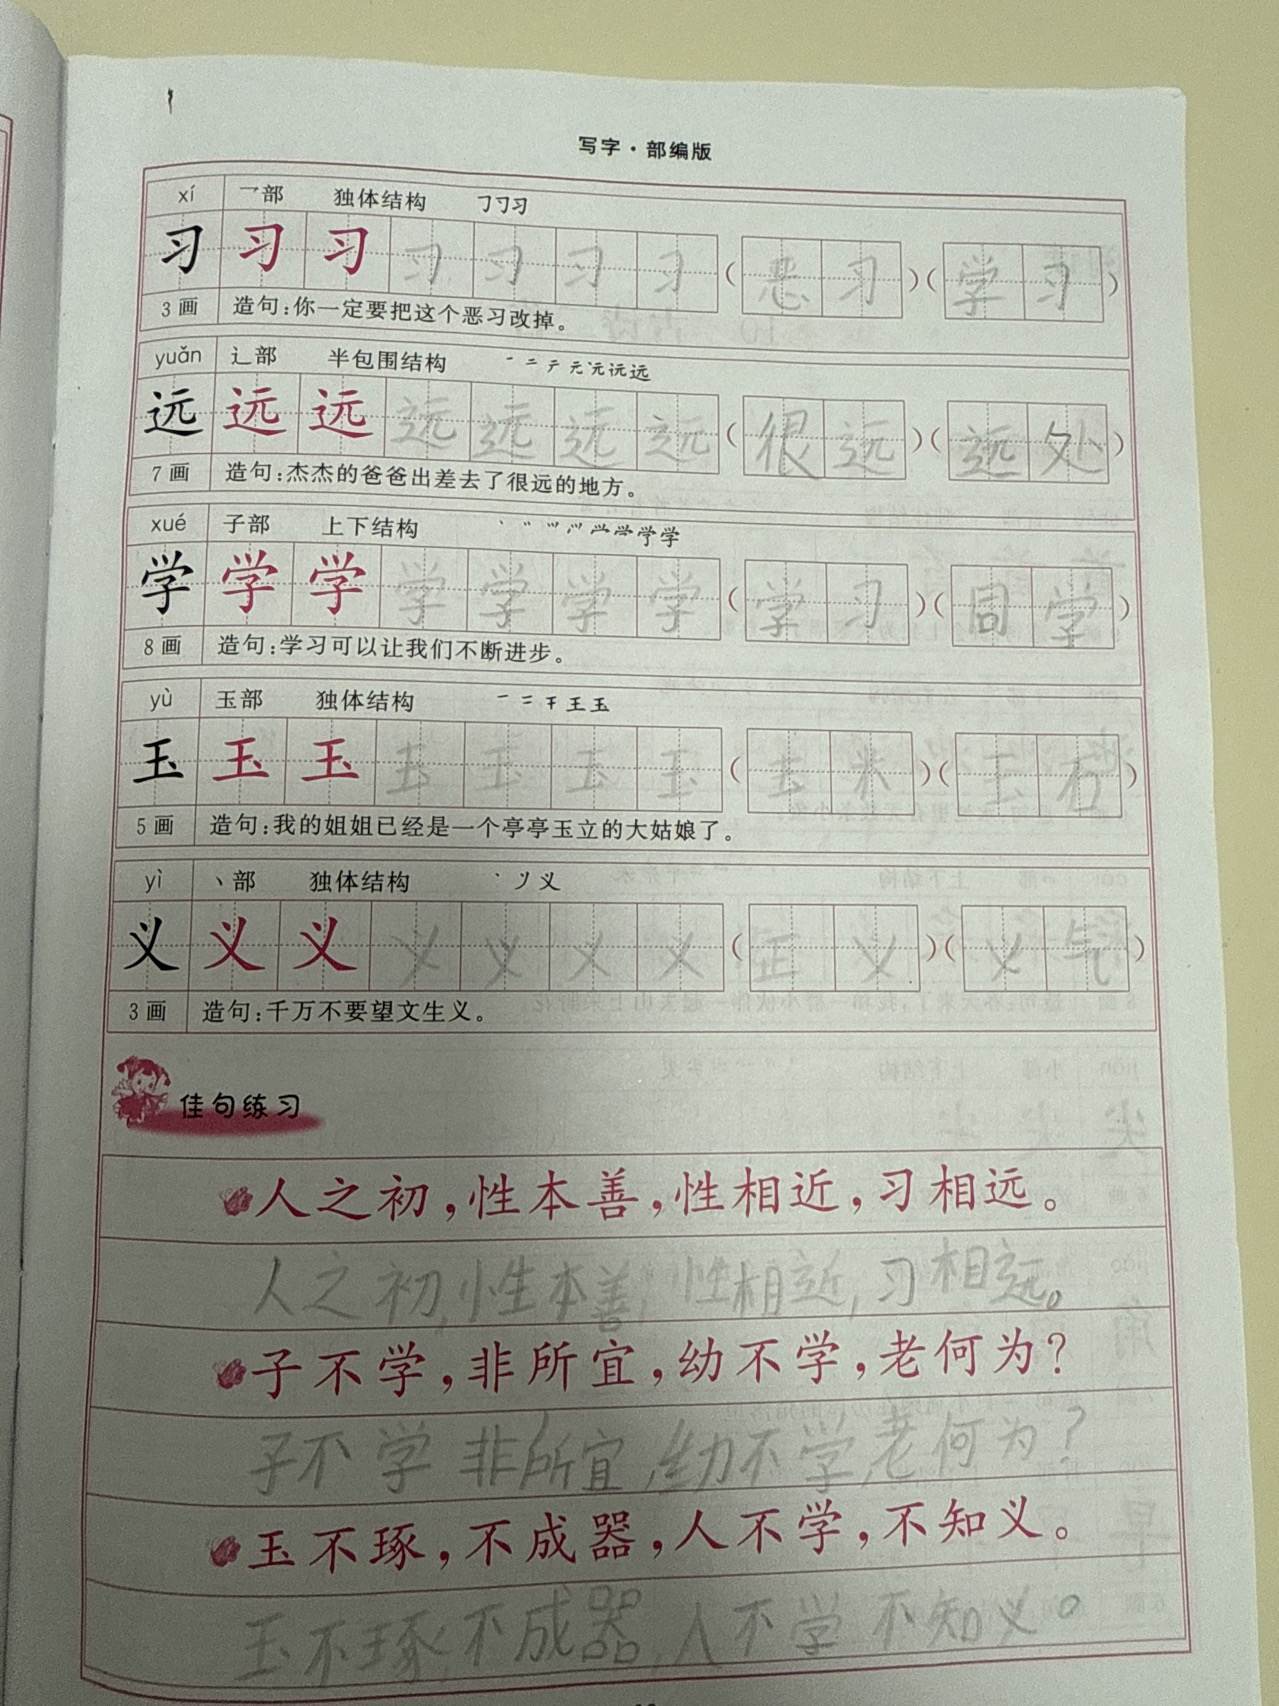 写字·部编版
xí 乛部 独体结构 ㇆习习
习 习 习 习 习 习 习 (恶习)(学习)
3画 造句:你一定要把这个恶习改掉。
yuǎn 辶部 半包围结构 一二テ元远远远
远 远 远 远 远 远 远 (很远)(远处)
7画 造句:杰杰的爸爸出差去了很远的地方。
xué 子部 上下结构 学学
学 学 学 学 学 学 学 (学习)(同学)
8画 造句:学习可以让我们不断进步。
yù 玉部 独体结构 一二干王玉
玉 玉 玉 玉 玉 玉 玉 (玉米)(玉石)
5画 造句:我的姐姐已经是一个亭亭玉立的大姑娘了。
yì 丶部 独体结构 丶 丷 义
义 义 义 义 义 义 义 (正义)(义气)
3画 造句:千万不要望文生义。
佳句练习
人之初,性本善,性相近,习相远。
人之初,性本善,性相近,习相远。
子不学,非所宜,幼不学,老何为?
子不学 非所宜,幼不学,老何为?
玉不琢,不成器,人不学,不知义。
玉不琢,不成器,人不学 不知义。